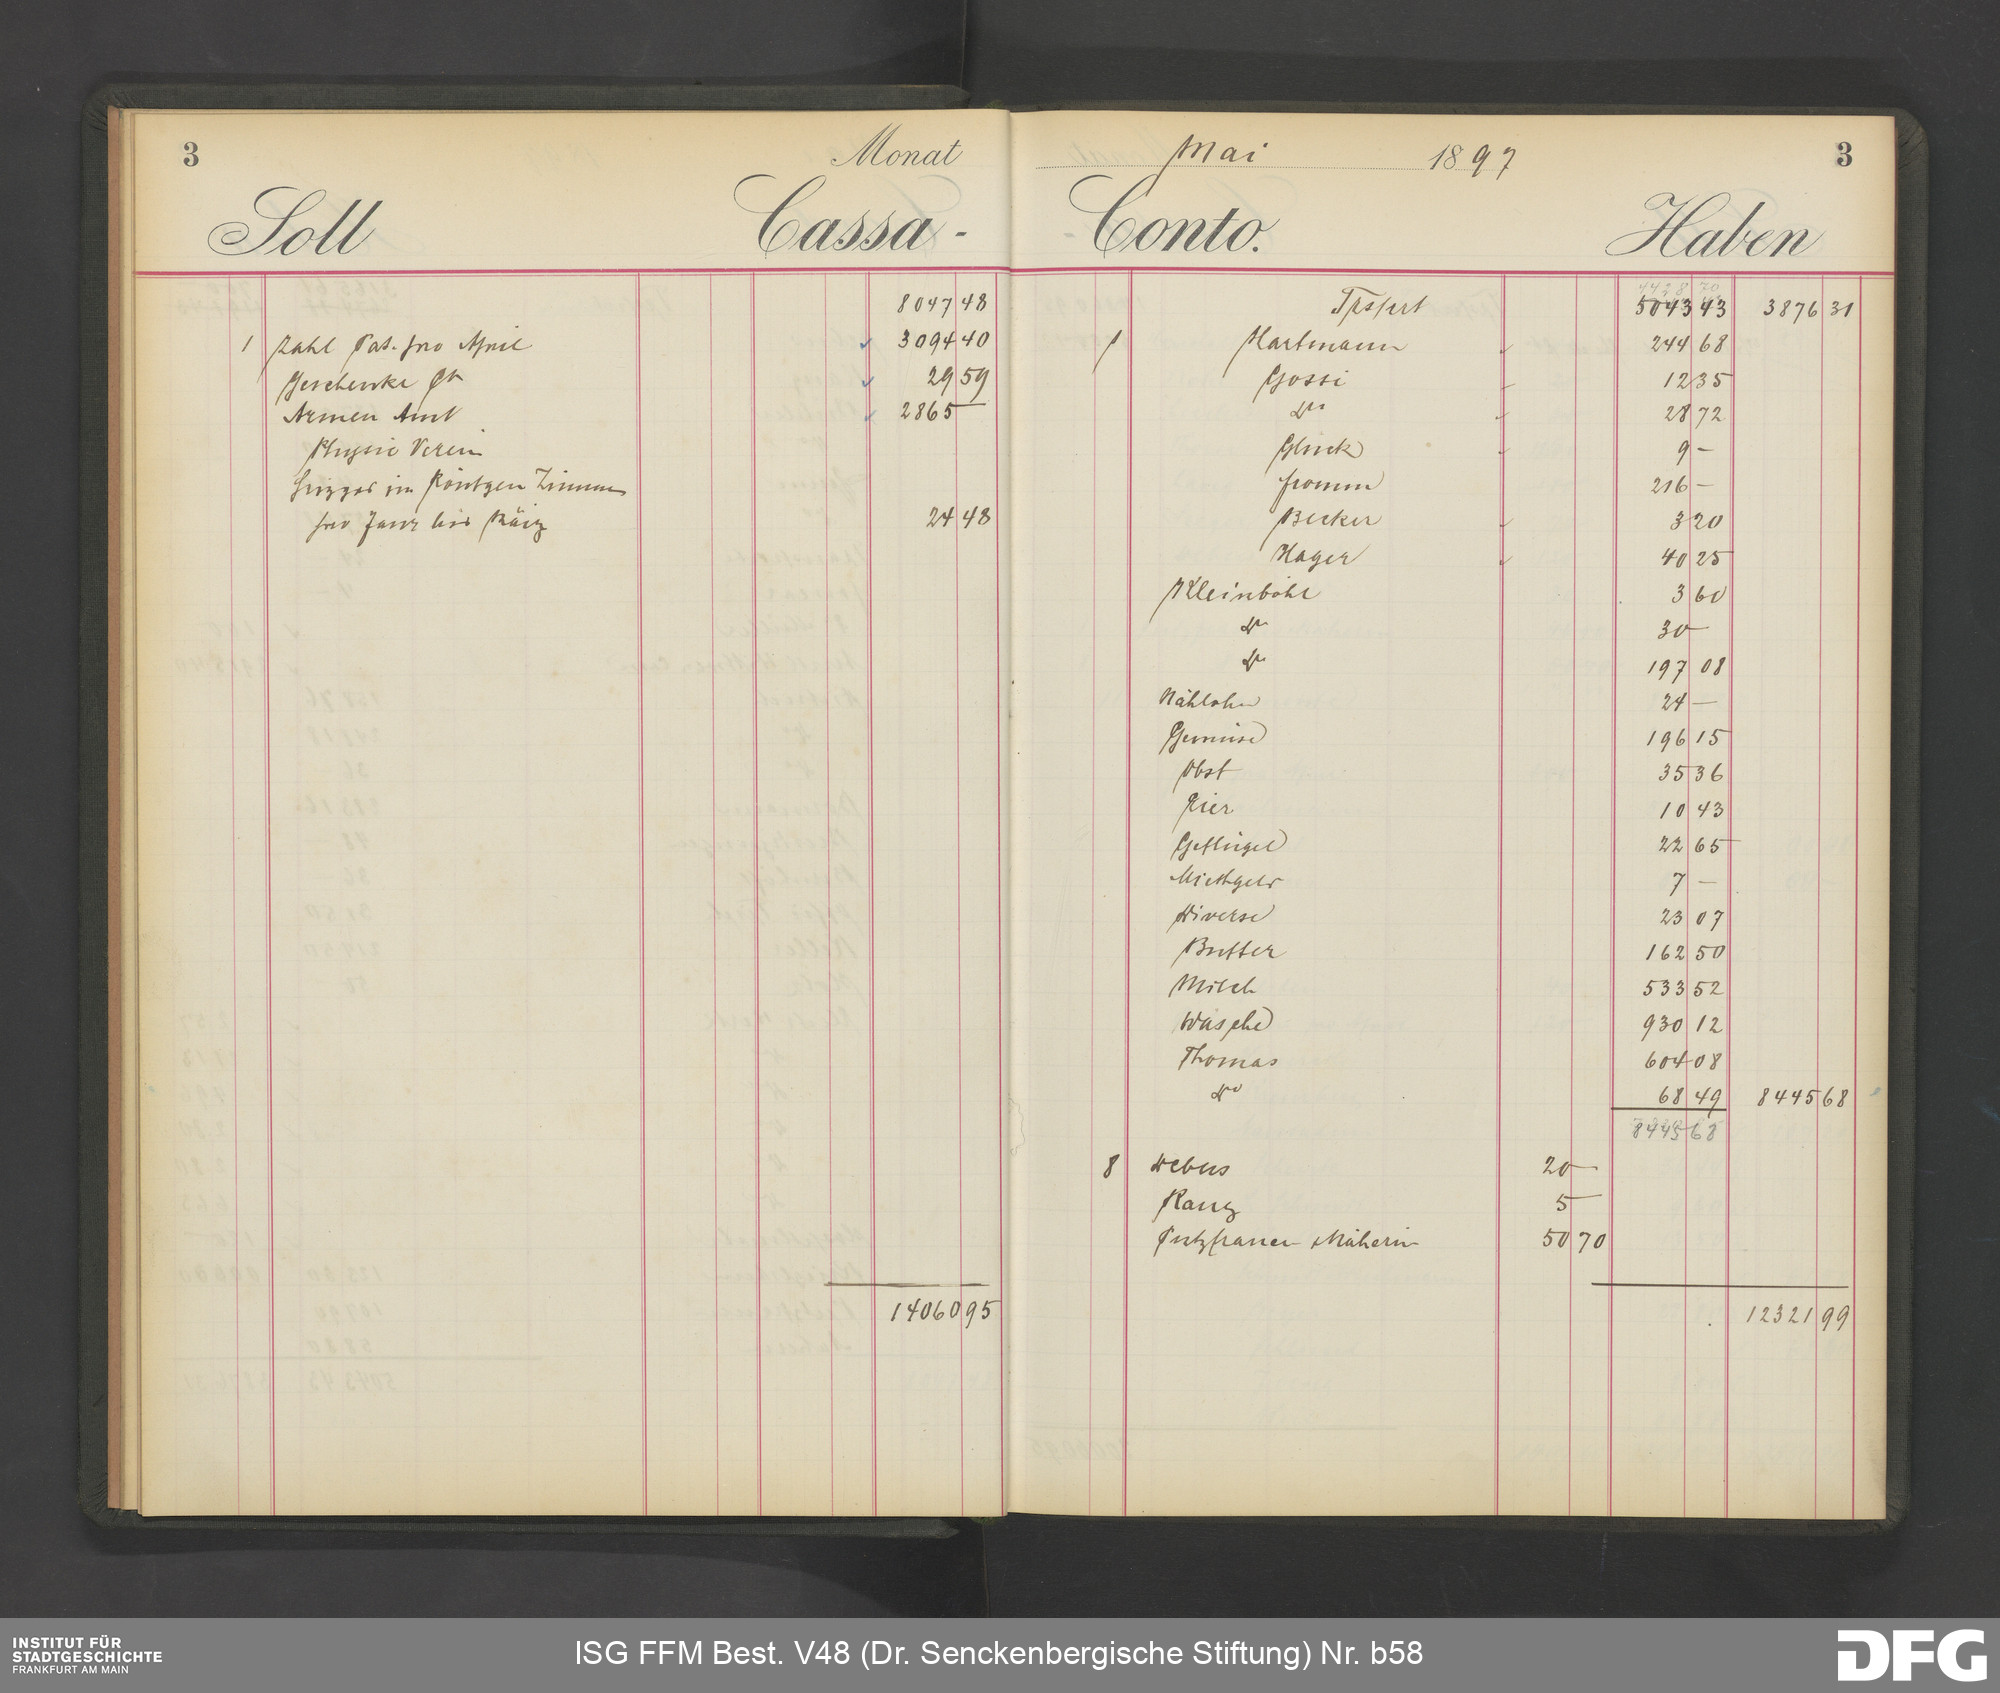 3 Monat Mai 1897 3
Soll Cassa - Conto. Haben
8047 48
1 Zahl Pat. pro April 3094 40
Geschenke Ct 29 59
Armen Amt 2865 —
Physic Verein
im Röntgen Zimmer
pro Janr bis März 24 48
14060 95
Trsprt 5043 43 3876 31
4428 70
1 Hartmann 244 68
Gossi 12 35
do 28 72
Glück 9 —
Fromm 216 —
Becker 3 20
Hager 40 25
Kleinböhl 3 60
do 30 —
do 197 08
Nählohn 24 —
Gemüse 196 15
Obst 35 36
Eier 10 43
Geflügel 22 65
Miethgeld 7 —
Diverse 23 07
Butter 162 50
Milch 533 52
Wäsche 930 12
Thomas 604 08
do 68 49 8445 68
8445 68
8 Debus 20 —
Ranz 5 —
Putzfrauen Näherin 50 70
12321 99
INSTITUT FÜR
STADTGESCHICHTE
FRANKFURT AM MAIN
ISG FFM Best. V48 (Dr. Senckenbergische Stiftung) Nr. b58
DFG